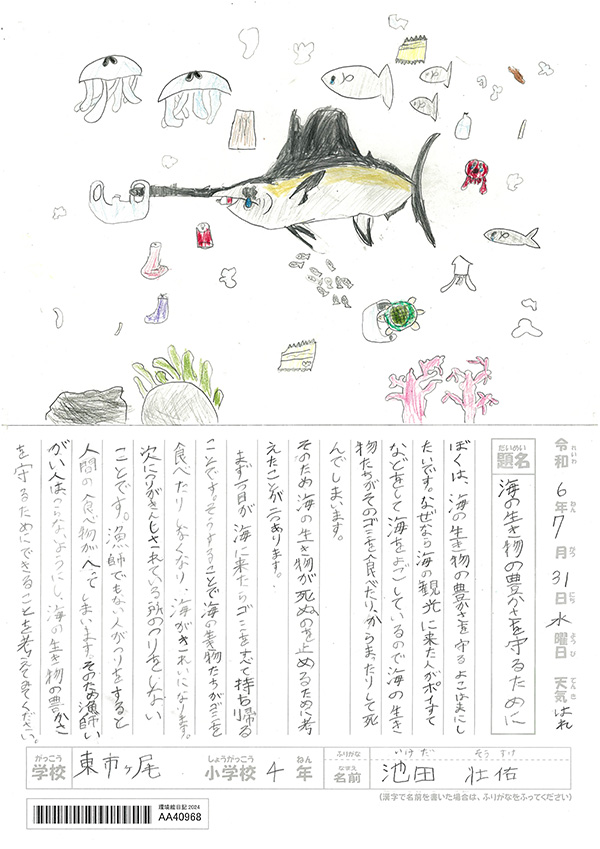 令和6年7月31日水曜日 天気はれ
れいわ ねん がつ にち ようび てんき
だいめい
題名 海の生き物の豊かさを守るために
ぼくは、海の生き物の豊かさを守るよこはまにし
たいです。なぜなら海の観光に来た人がポイすて
などをして海をよごしているので海の生き
物たちがそのゴミを食べたり、からまったりして死
んでしまいます。
そのため海の生き物が死ぬのを止めるために考
えたことが二つあります。
まず一つ目が海に来たらゴミをすべて持ち帰る
ことです。そうすることで海の生き物たちがゴミを
食べたりしなくなり、海がきれいになります。
次につりがきんしされている所のつりをしない
ことです。漁師でもない人がつりをすると
人間の食べ物がへってしまいます。そのため漁師い
がい人はつらないようにし、海の生き物の豊かさ
を守るためにできることを考えてみてください。
がっこう しょうがっこう ねん ふりがな いけだ そうすけ
学校 東市ヶ尾 小学校 4年 なまえ 名前 池田 壮佑
(漢字で名前を書いた場合は、ふりがなをふってください)
環境絵日記2024
AA40968